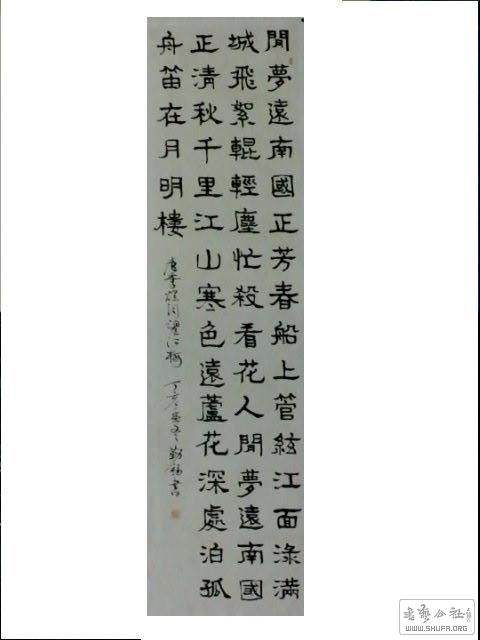 閒夢遠南國正芳春船上管絃江面淥滿
城飛絮輥輕塵忙殺看花人閒夢遠南國
正清秋千里江山寒色遠蘆花深處泊孤
舟笛在月明樓
唐李煜詞望江梅 丁亥 勤 書
书艺公社
WWW.SHUFA.ORG